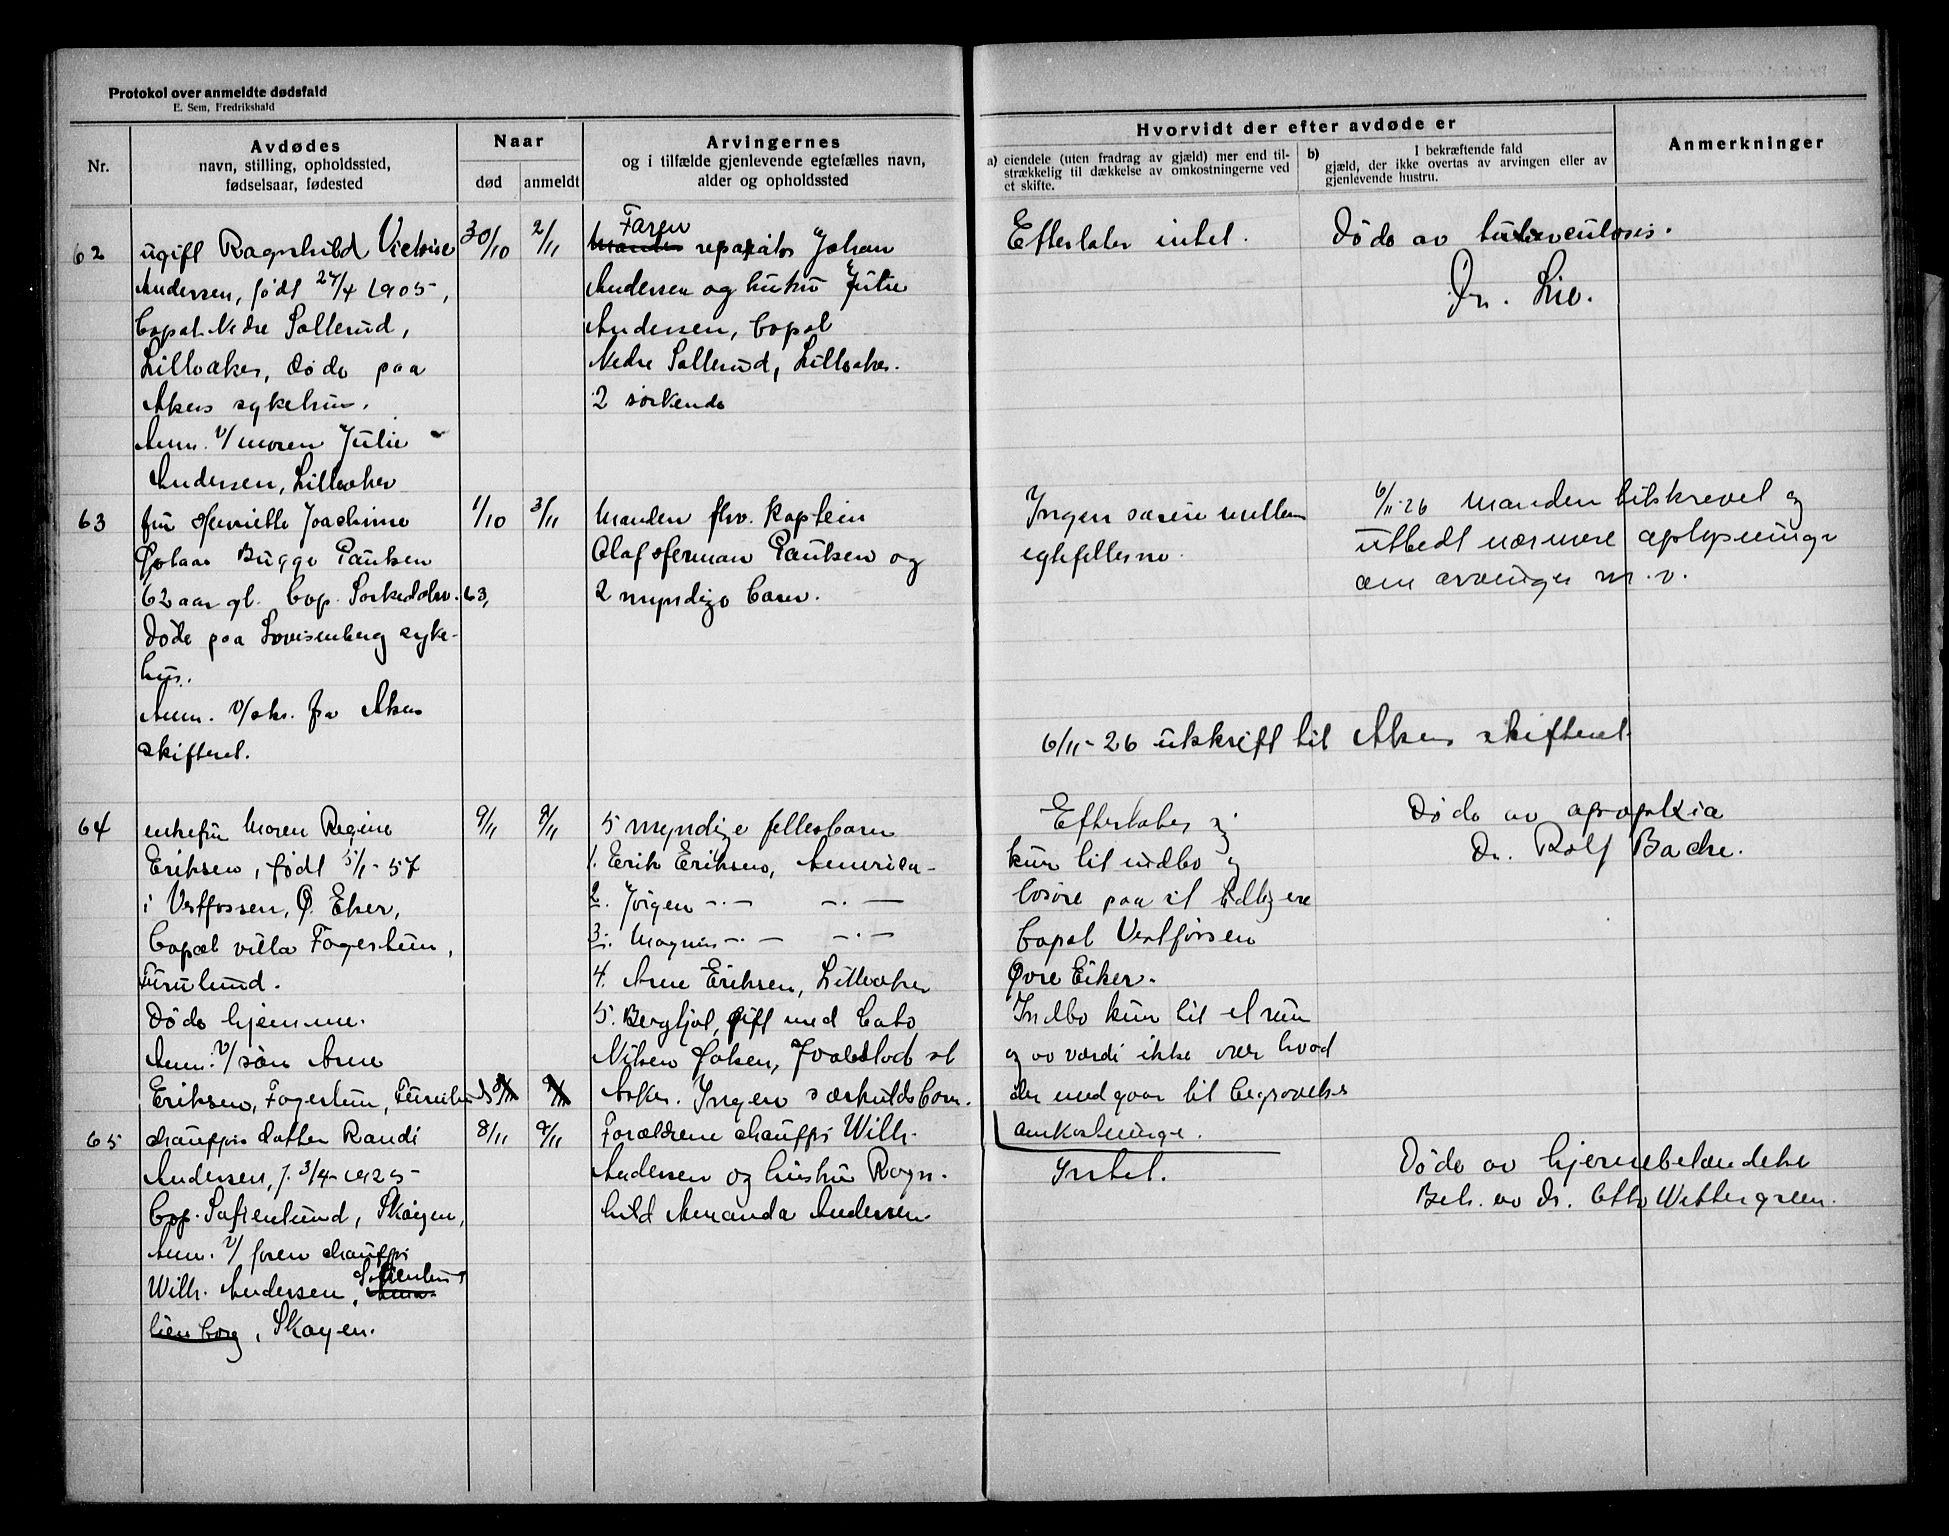 Protokol over anmeldte dødsfald
E. Sem, Fredrikshald
Nr.
Avdødes
navn, stilling, opholdssted,
fødselsaar, fødested
Naar
død
anmeldt
Arvingernes
og i tilfælde gjenlevende egtefælles navn,
alder og opholdssted
Hvorvidt der efter avdøde er
a) eiendele (uten fradrag av gjæld) mer end til-
strækkelig til dækkelse av omkostningerne ved
et skifte.
b) I bekræftende fald
gjæld, der ikke overtas av arvingen eller av
gjenlevende hustru.
Anmerkninger
62
ugift Ragnhild Victoria
Andersen, født 27/4 1905,
bopæl Nedre Sollerud,
Lilleaker, døde paa
Akers sykehus.
Anm. v/ moren Julie
Andersen, Lilleaker
30/10
2/11
Faren
Manden reparatør Johan
Andersen og hustru Julie
Andersen, bopæl
Nedre Sollerud, Lilleaker.
2 søskende
Efterlater intet.
Døde av tuberculosis.
Dr. Lie.
63
fru Henriette Joachime
Bugge Paulsen
62 aar gl. bop. Sørkedalsv. 63,
døde paa Lovisenberg syke-
hus.
Anm. v/skr. fra Akers
skifteret.
1/10
3/11
Manden fhv. kaptein
Olaf Herman Paulsen og
2 myndige barn.
Ingen særeie mellem
egtefellerne.
6/11-26 Manden tilskrevet og
utbedt nærmere oplysninger
om arvinger m.v.
6/11-26 utskrift til Akers skifteret.
64
enkefru Maren Regine
Eriksen, født 5/1-57
i Vestfossen, Ø. Eker,
bopæl villa Fagertun,
Furulund.
Døde hjemme.
Anm. v/ søn Arne
Eriksen, Fagertun, Furulund
9/11
9/11
5 myndige fellesbarn
1. Erik Eriksen, Amerika
2. Jørgen -"- -"-
3. Magnus -"- -"-
4. Arne Eriksen, Lilleaker
5. Bergljot, gift med Cato
Nilsen Holsen, Hvalstad st
Asker. Ingen særkuldsbarn.
Efterlater sig
kun litt indbo og
løsøre paa sit tidligere
bopæl Vestfossen
Øvre Eiker.
Indbo kun til et rum
og av værdi ikke over hvad
der medgaar til begravelses
omkostninger.
Døde av apoplexia
Dr. Rolf Bache.
65
chaufførs datter Randi
Andersen, f. 3/4-1925
bop. Sofienlund, Skøyen,
Anm. v/ faren chauffør
Wilh. Andersen, Sofienlund
Ama-
lienborg, Skøyen.
8/11
9/11
Forældrene chauffør Wilh.
Andersen og hustru Ragn-
hild Amanda Andersen
Intet.
Døde av hjernebetændelse
Beh. av dr. Otto Wettergreen.